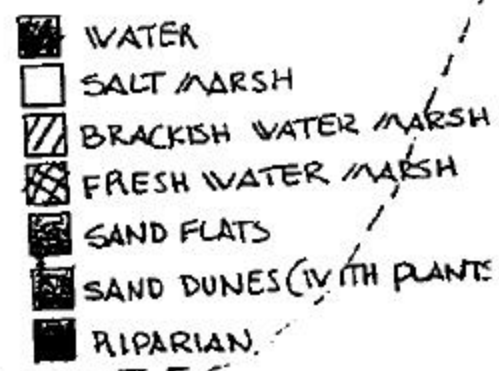 WATER
SALT MARSH
BRACKISH WATER MARSH
FRESH WATER MARSH
SAND FLATS
SAND DUNES (WITH PLANTS
RIPARIAN